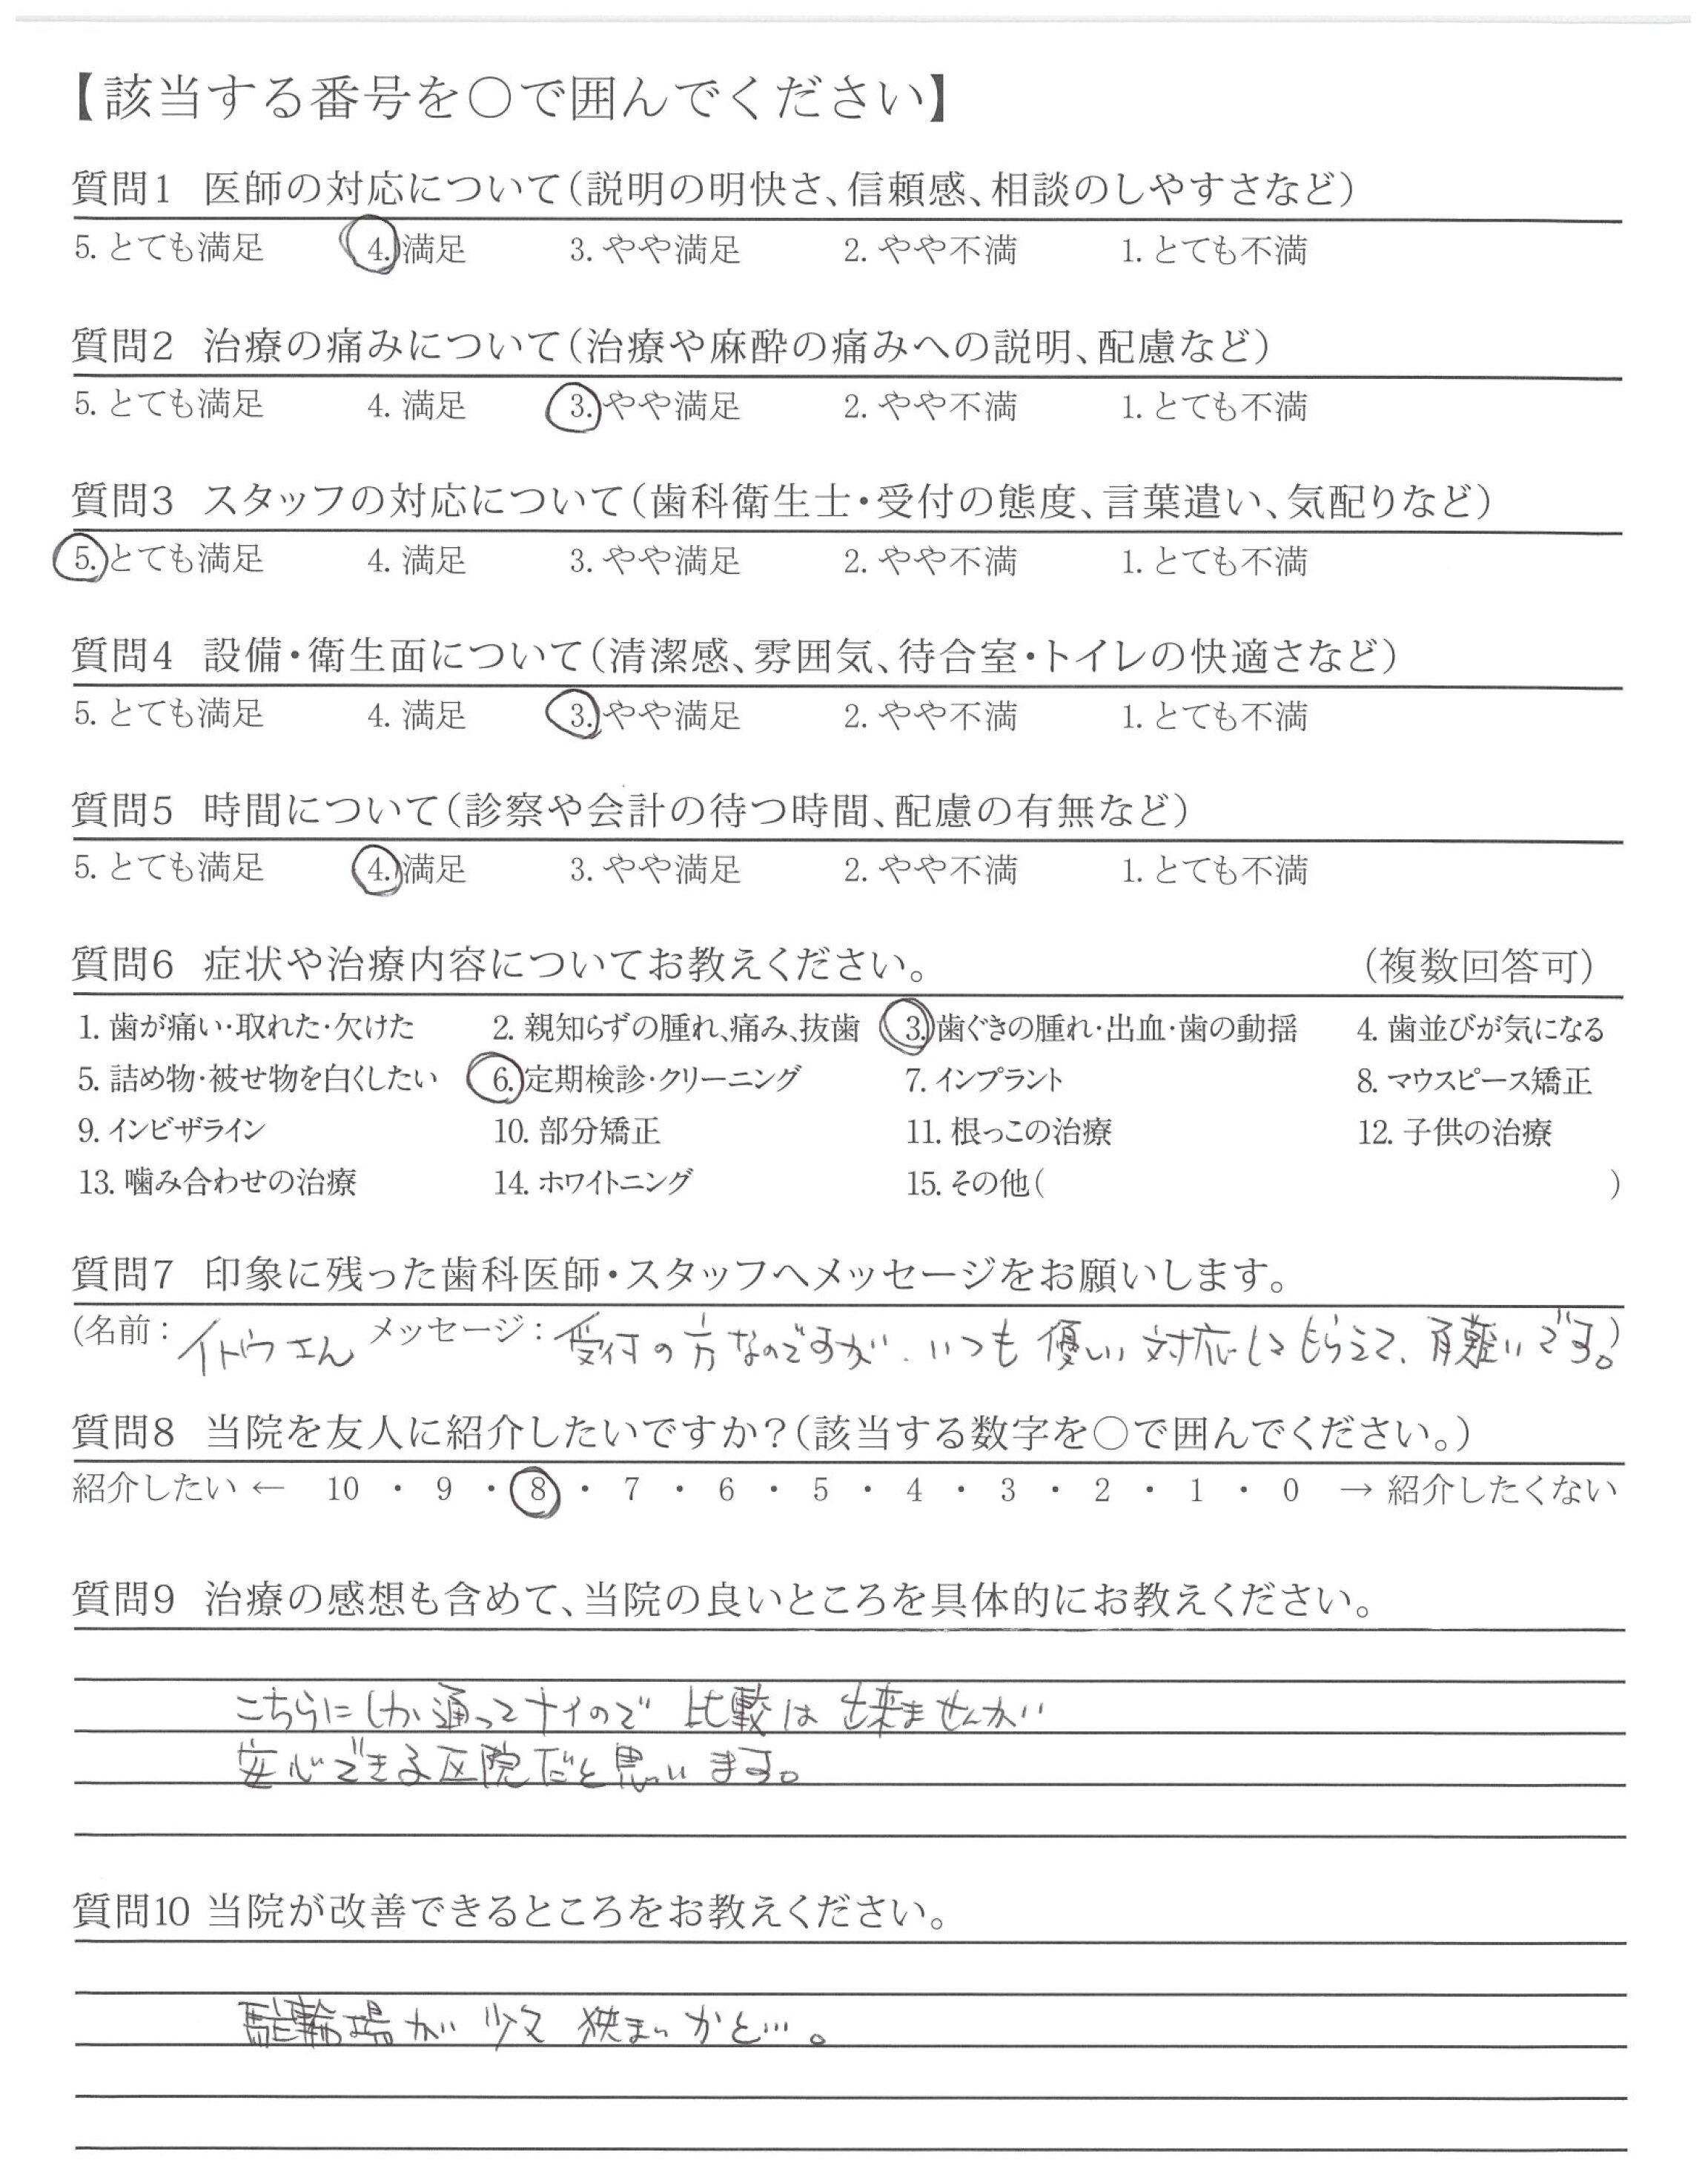 【該当する番号を○で囲んでください】
質問1 医師の対応について(説明の明快さ、信頼感、相談のしやすさなど)
5. とても満足 4. 満足 3. やや満足 2. やや不満 1. とても不満
質問2 治療の痛みについて(治療や麻酔の痛みへの説明、配慮など)
5. とても満足 4. 満足 3. やや満足 2. やや不満 1. とても不満
質問3 スタッフの対応について(歯科衛生士・受付の態度、言葉遣い、気配りなど)
5. とても満足 4. 満足 3. やや満足 2. やや不満 1. とても不満
質問4 設備・衛生面について(清潔感、雰囲気、待合室・トイレの快適さなど)
5. とても満足 4. 満足 3. やや満足 2. やや不満 1. とても不満
質問5 時間について(診察や会計の待つ時間、配慮の有無など)
5. とても満足 4. 満足 3. やや満足 2. やや不満 1. とても不満
質問6 症状や治療内容についてお教えください。 (複数回答可)
1. 歯が痛い・取れた・欠けた 2. 親知らずの腫れ、痛み、抜歯 3. 歯ぐきの腫れ・出血・歯の動揺 4. 歯並びが気になる
5. 詰め物・被せ物を白くしたい 6. 定期検診・クリーニング 7. インプラント 8. マウスピース矯正
9. インビザライン 10. 部分矯正 11. 根っこの治療 12. 子供の治療
13. 噛み合わせの治療 14. ホワイトニング 15. その他( )
質問7 印象に残った歯科医師・スタッフへメッセージをお願いします。
(名前: イトウさん メッセージ: 受付の方なのですが、いつも優しい対応してもらえて、有難いです。)
質問8 当院を友人に紹介したいですか?(該当する数字を○で囲んでください。)
紹介したい ← 10 ・ 9 ・ 8 ・ 7 ・ 6 ・ 5 ・ 4 ・ 3 ・ 2 ・ 1 ・ 0 → 紹介したくない
質問9 治療の感想も含めて、当院の良いところを具体的にお教えください。
こちらにしか通ってナイので 比較は出来ませんが
安心できる医院だと思います。
質問10 当院が改善できるところをお教えください。
駐輪場が少々狭まいかと…。